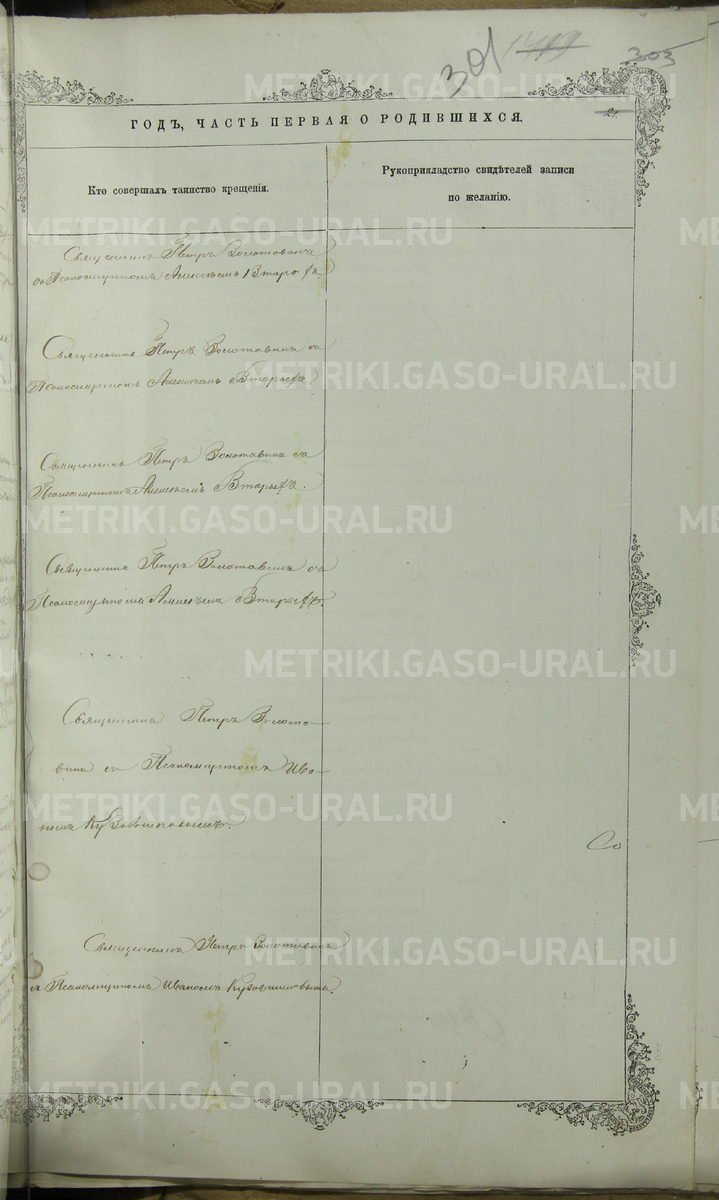 301
305
ГОДЪ, ЧАСТЬ ПЕРВАЯ О РОДИВШИХСЯ.
Кто совершалъ таинство крещенія.
Рукоприкладство свидѣтелей записи
по желанію.
Священникъ Петръ Золотавинъ
съ Псаломщикомъ Алексѣемъ
Священникъ Петръ Золотавинъ съ
Псаломщикомъ Алексѣемъ
Священникъ Петръ Золотавинъ съ
Псаломщикомъ Алексѣемъ
Священникъ Петръ Золотавинъ съ
Псаломщикомъ Алексѣемъ
Священникъ Петръ Золота-
винъ съ Псаломщикомъ Ива-
номъ Кузовниковымъ.
Со
Священникъ Петръ Золотавинъ
съ Псаломщикомъ Иваномъ Кузовниковымъ.
METRIKI.GASO-URAL.RU